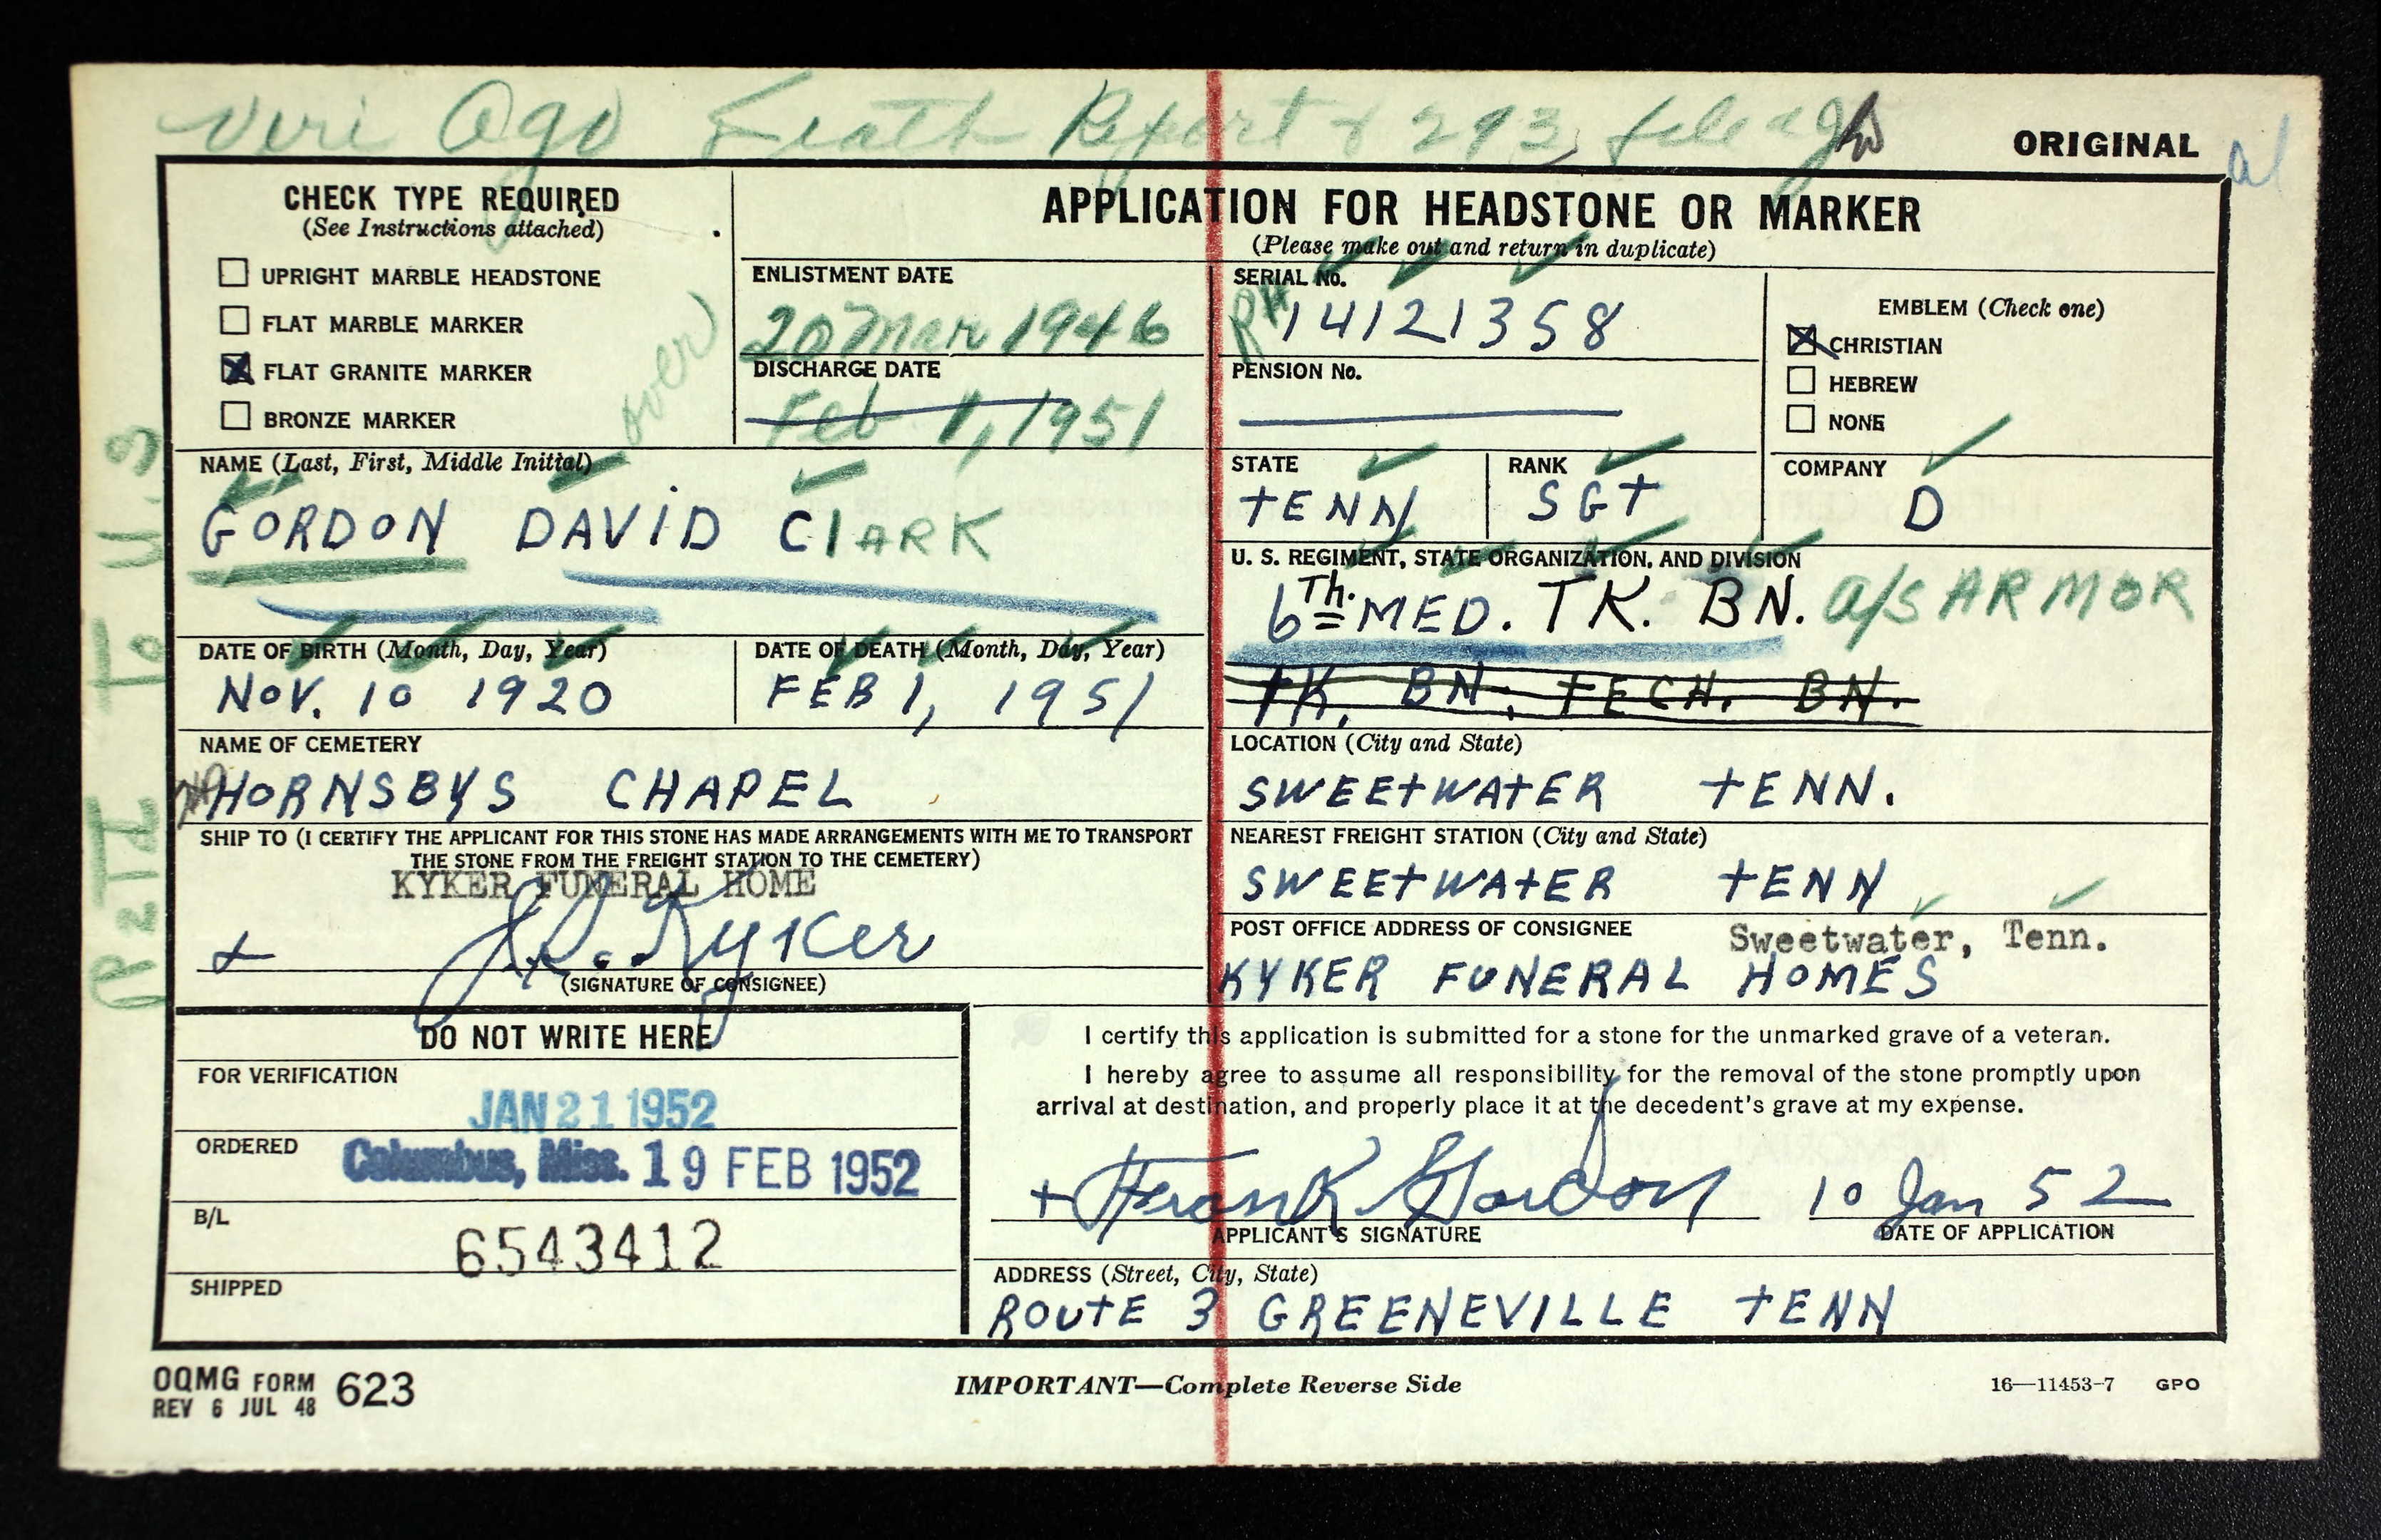 Veri Ogo Death Report & 293 file
ORIGINAL
al
CHECK TYPE REQUIRED
(See Instructions attached)
UPRIGHT MARBLE HEADSTONE
FLAT MARBLE MARKER
FLAT GRANITE MARKER
BRONZE MARKER
over
APPLICATION FOR HEADSTONE OR MARKER
(Please make out and return in duplicate)
ENLISTMENT DATE
20 Mar 1946
DISCHARGE DATE
Feb 1, 1951
SERIAL No.
RA 14121358
PENSION No.
EMBLEM (Check one)
CHRISTIAN
HEBREW
NONE
NAME (Last, First, Middle Initial)
GORDON DAVID ClARK
STATE
TENN
RANK
SGT
COMPANY
D
U. S. REGIMENT, STATE ORGANIZATION, AND DIVISION
6Th. MED. TK. BN. a/s ARMOR
TK. BN. TECH. BN.
DATE OF BIRTH (Month, Day, Year)
NOV. 10 1920
DATE OF DEATH (Month, Day, Year)
FEB 1, 1951
NAME OF CEMETERY
HORNSBYS CHAPEL
LOCATION (City and State)
SWEETWATER TENN.
SHIP TO (I CERTIFY THE APPLICANT FOR THIS STONE HAS MADE ARRANGEMENTS WITH ME TO TRANSPORT
THE STONE FROM THE FREIGHT STATION TO THE CEMETERY)
KYKER FUNERAL HOME
Kyker
(SIGNATURE OF CONSIGNEE)
NEAREST FREIGHT STATION (City and State)
SWEETWATER TENN
POST OFFICE ADDRESS OF CONSIGNEE
Sweetwater, Tenn.
KYKER FUNERAL HOMES
DO NOT WRITE HERE
FOR VERIFICATION
JAN 21 1952
ORDERED
Columbus, Miss. 19 FEB 1952
B/L
6543412
SHIPPED
I certify this application is submitted for a stone for the unmarked grave of a veteran.
I hereby agree to assume all responsibility for the removal of the stone promptly upon
arrival at destination, and properly place it at the decedent's grave at my expense.
+ Frank Gordon 10 Jan 52
APPLICANT'S SIGNATURE
DATE OF APPLICATION
ADDRESS (Street, City, State)
ROUTE 3 GREENEVILLE TENN
OQMG FORM 623
REV 6 JUL 48
IMPORTANT—Complete Reverse Side
16—11453-7 GPO